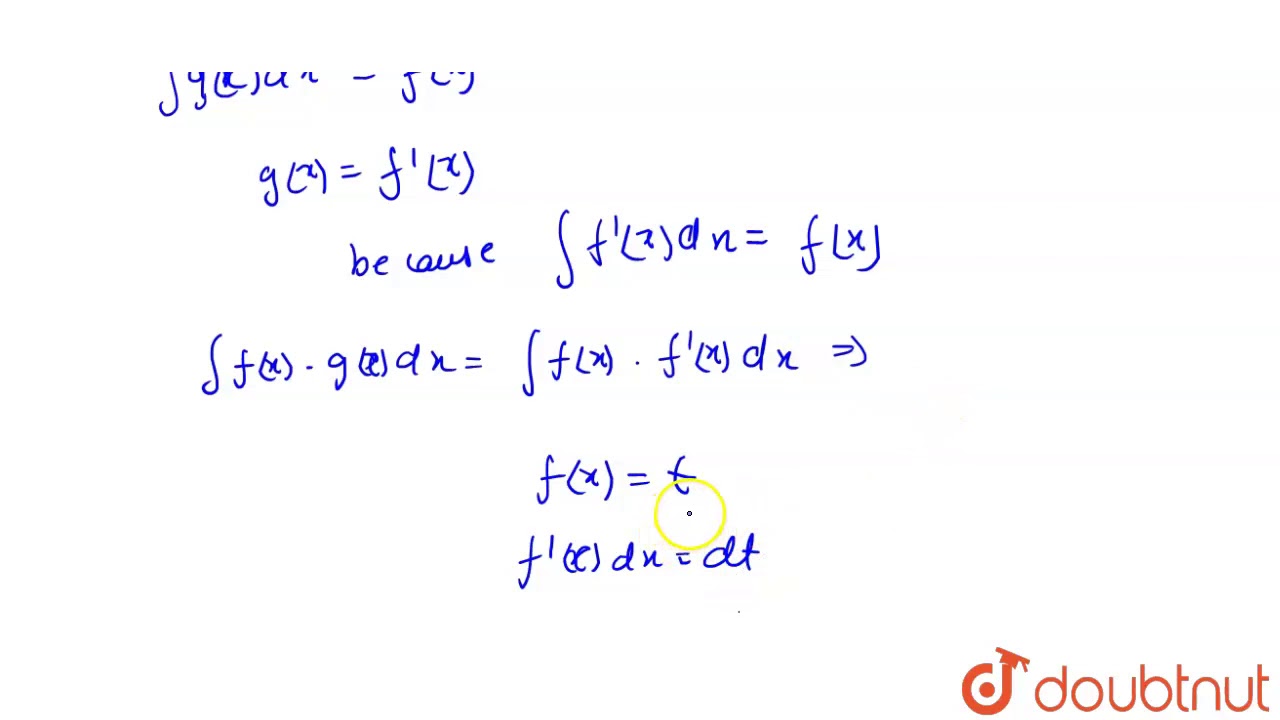 g(x) = f'(x)
because ∫ f'(x) dx = f(x)
∫ f(x) · g(x) dx = ∫ f(x) · f'(x) dx ⇒
f(x) = t
f'(x) dx = dt
doubtnut